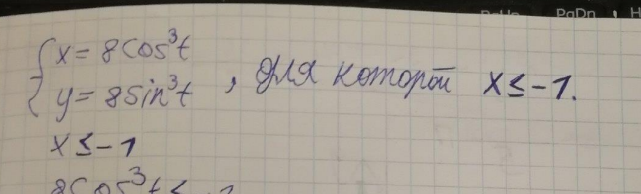 PgDn
{ x = 8cos³t
y = 8sin³t , для которой x ≤ -1.
x ≤ -1
8cos³t ≤